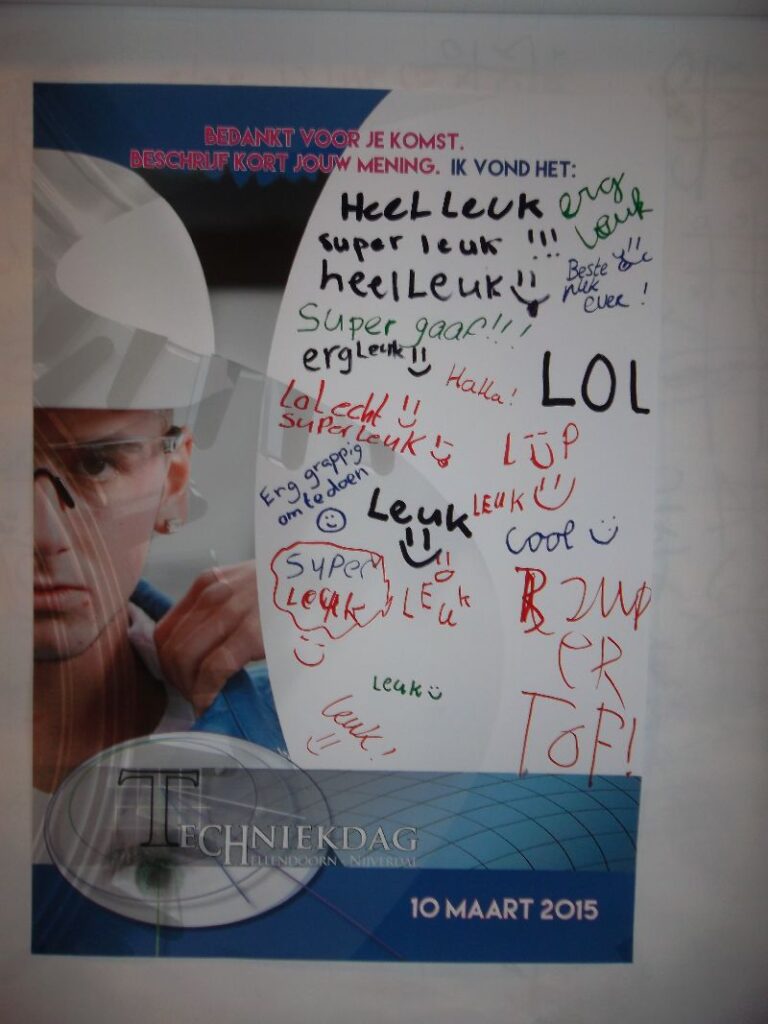 BEDANKT VOOR JE KOMST.
BESCHRIJF KORT JOUW MENING. IK VOND HET:
HEEL LEUK
erg
Leuk
super leuk !!!
heel Leuk
Beste
plek
ever!
Super gaaf!!!
erg Leuk
Halla!
LOL
Lol echt
super Leuk
LüP
Erg grappig
om te doen
Leuk
LEUK
cool
SUPER
LEUK
LEuk
ER
TOF!
Leuk
leuk!
TECHNIEKDAG
HELLENDOORN - NIJVERDAL
10 MAART 2015